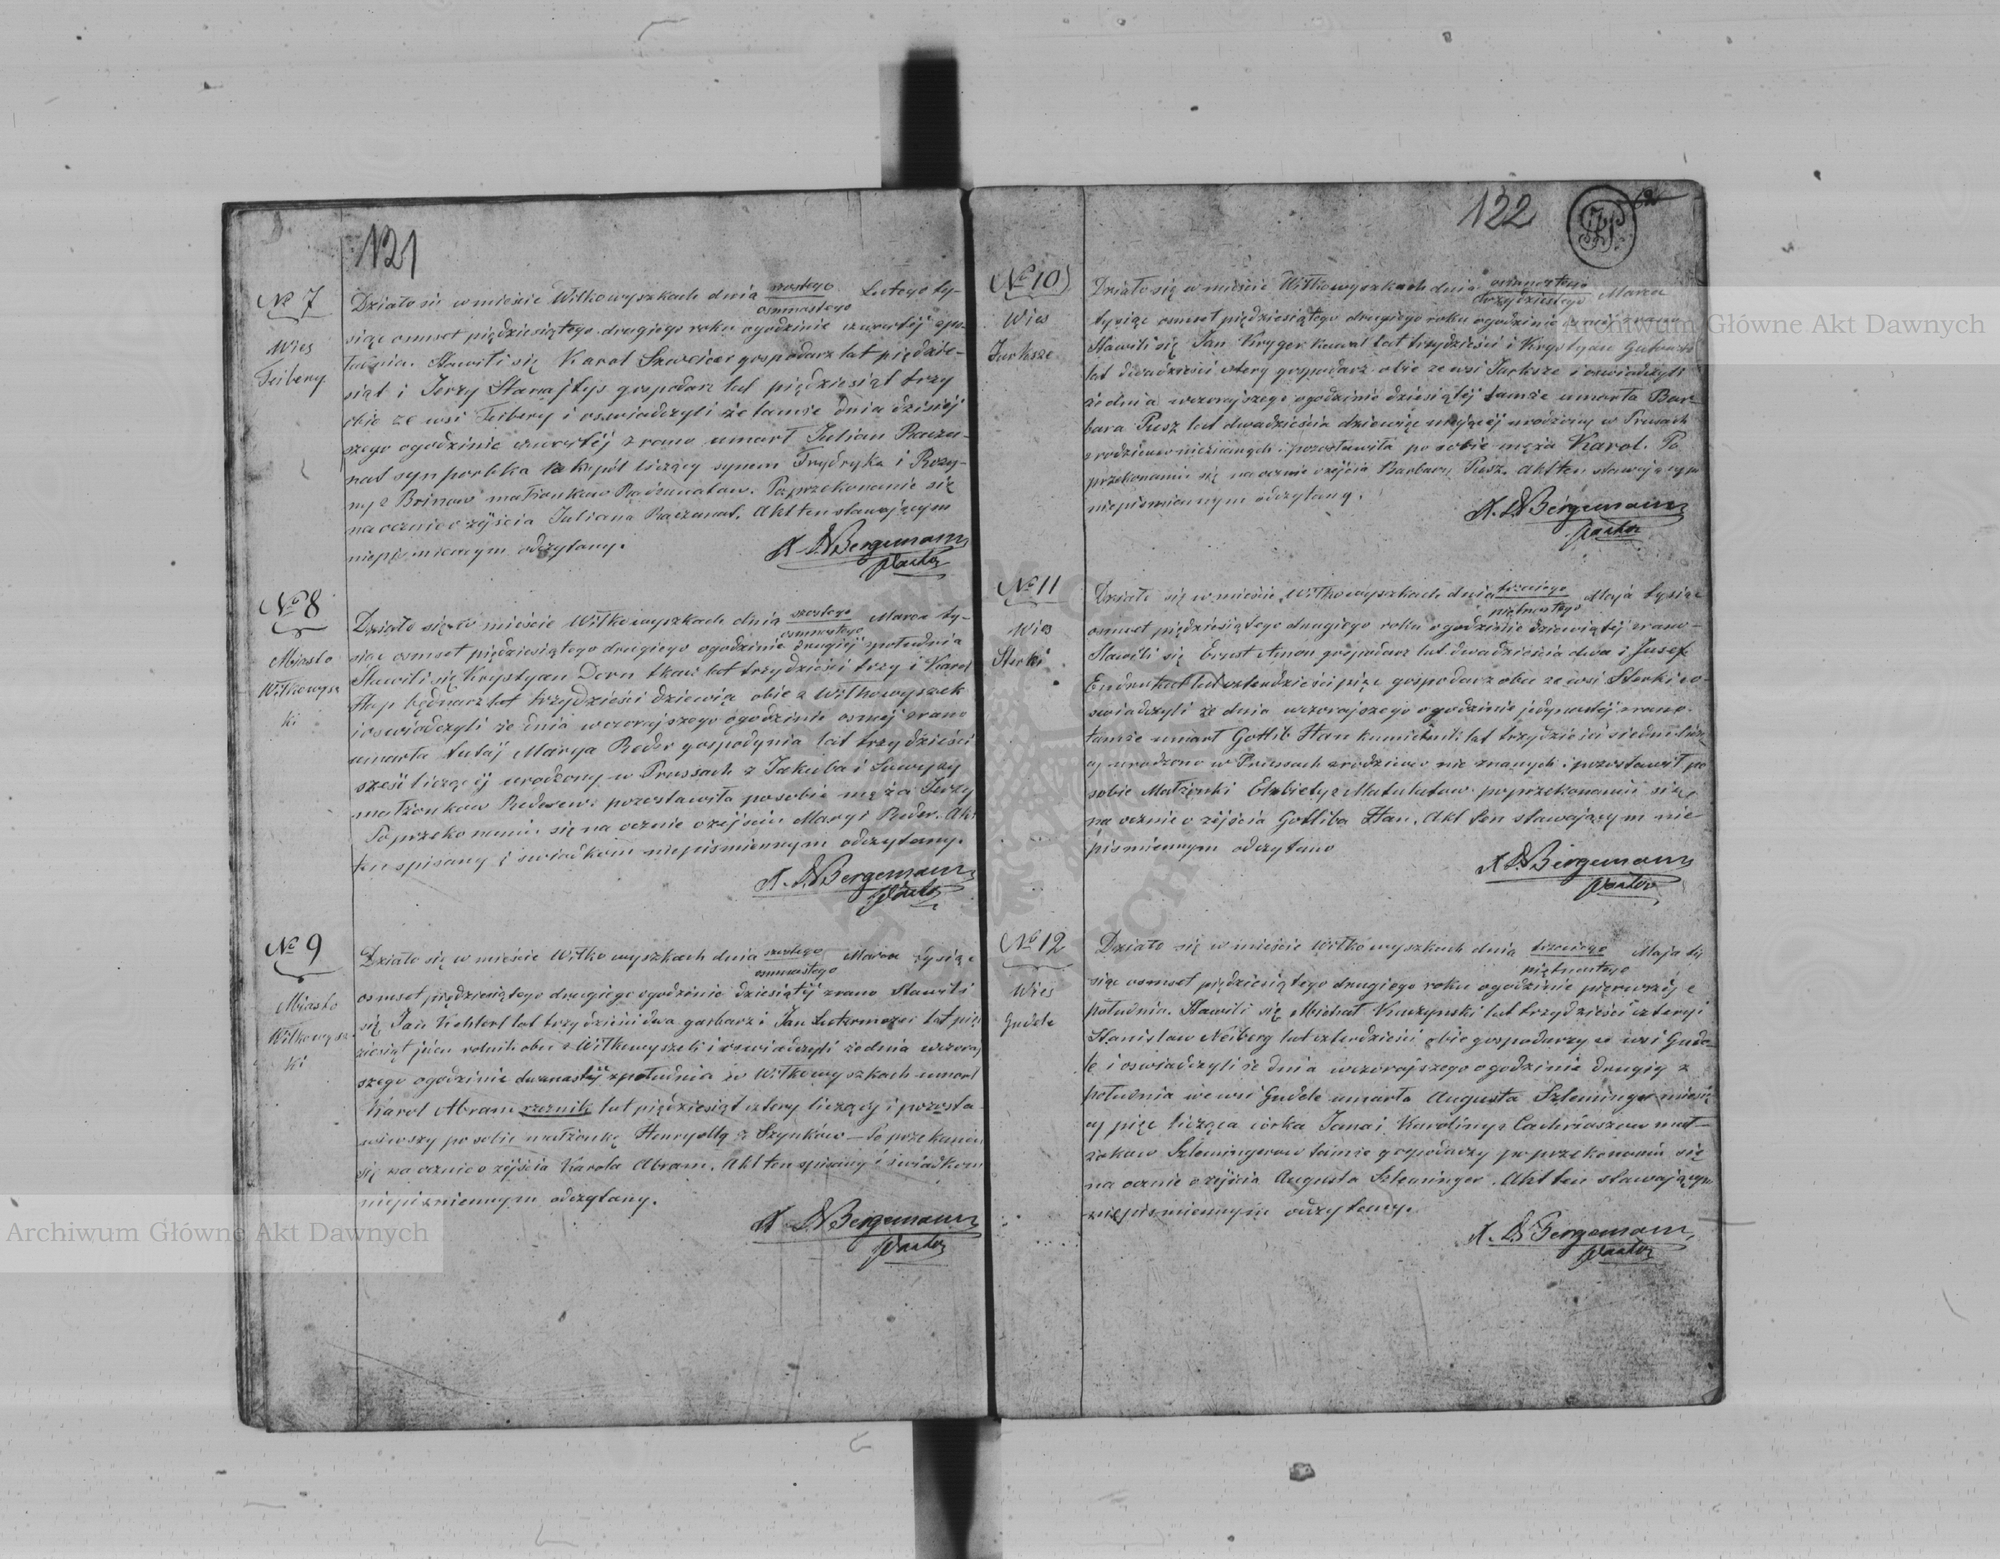 121
№ 7
Wieś
Feibery
Działo się w mieście Wiłkowyszkach dnia szóstego/osmnastego Lutego ty-
siąc osmset piędziesiątego drugiego roku ogodzinie czwartej zpo-
łudnia. Stawili się Karol gospodarz lat piędzie-
siąt i Jerzy Stanajtys gospodarz lat pięćdziesiąt trzy
obie ze wsi Feibery i oświadczyli że tamże dnia dzisiej
szego ogodzinie czwartej zrana umarł Julian Raczu-
nat syn parobka liczący synem Frydryka i Rozy-
ny z małżonków Poprzekonanie się
naocznie o zejściu Juliana Raczunat. Akt ten stawającym
niepiśmiennym odczytany.
A. W Bergemann
Pastor
№ 8
Miasto
Wiłkowysz
ki
Działo się w mieście Wiłkowyszkach dnia szóstego/osmnastego Marca ty-
siąc osmset piędziesiątego drugiego ogodzinie drugiej zpołudnia
Stawili się Krystyan Dorn tkacz lat trzydzieści trzy i Karol
Hap bednarz lat trzydzieści dziewięć obie z Wiłkowyszek
i oświadczyli że dnia wczorajszego ogodzinie osmej zrana
umarła tutaj Marya Reder gospodynia lat trzydzieści
sześć liczącej urodzony w Prussach z Jakuba i
małżonków pozostawiła posobie męża Jerzy
Po przekonaniu się na ocznie o zejściu Maryi Reder. Akt
ten spisany i świadkom niepiśmiennym odczytany.
A. W Bergemann
Pastor
№ 9
Miasto
Wiłkowysz
ki
Działo się w mieście Wiłkowyszkach dnia szóstego/osmnastego Marca tysiąc
osmset pięździesiątego drugiego ogodzinie dziesiątej zrana Stawili
się Jan lat trzydzieści dwa garbarz i Jan lat pię
ździesiąt rolnik obu z Wiłkowyszek i oświadczyli że dnia wczoraj
szego ogodzinie dwunastej zpołudnia w Wiłkowyszkach umarł
Karol Abram rzeznik lat pięździesiąt cztery liczący i pozosta-
wiwszy po sobie małżonkę Henryettę z Szynków – Po przekonaniu
się na ocznie o zejściu Karola Abram. Akt ten spisany i świadkom
niepiśmiennym odczytany.
A. W Bergemann
Pastor
122
№ 10
Wieś
Jurksze
Działo się w mieście Wiłkowyszkach dnia osmnastego/trzydziestego Marca
tysiąc osmset pięździesiątego drugiego roku ogodzinie zrana
Stawili się Jan Kryger kowal lat trzydzieści i Krystyan
lat dwadzieścia cztery gospodarz obie ze wsi Jurksze i oświadczyli
że dnia wczorajszego ogodzinie dziesiątej tamże umarła Bar-
bara Pusz lat dwadzieścia dziewięć mającej urodzony w Prusach
z rodziców nieznanych i pozostawiła po sobie męża Karol. Po
przekonaniu się na ocznie o zejściu Barbary Pusz. Akt ten stawającym
niepiśmiennym odczytany.
A. W Bergemann
Pastor
№ 11
Wieś
Sterki
Działo się w mieście Wiłkowyszkach dnia trzeciego/piętnastego Maja tysiąc
osmset pięździesiątego drugiego roku ogodzinie dziewiątej zrana –
Stawili się Ernst Amon gospodarz lat dwadzieścia dwa i Jusef
lat czterdzieści pięć gospodarz obu ze wsi Sterki i o-
świadczyli że dnia wczorajszego ogodzinie jedynastej zrana
tamże umarł Gotlib Han lat trzydzieści siedm liczą
cy urodzono w Prussach z rodziców nie znanych i pozostawił po
sobie Małżonki Elżbiety z po przekonaniu się
na ocznie o zejściu Gottliba Han. Akt ten stawającym nie-
piśmiennym odczytano
A. W Bergemann
Pastor
№ 12
Wieś
Gudele
Działo się w mieście Wiłkowyszkach dnia trzeciego/piętnastego Maja ty
siąc osmset pięździesiątego drugiego roku ogodzinie pierwszej z
południa. Stawili się Michał Kuczynski lat trzydzieści cztery i
Stanisław Neiberg lat czterdzieści obie gospodarzy ze wsi Gude-
le i oświadczyli że dnia wczorajszego ogodzinie drugiej z
południa we wsi Gudele umarła Augusta Szleminger miesię
cy pięć licząca córka Jana i Karoliny z małż-
żonków Szlemingerow tamże gospodarzy po przekonaniu się
na ocznie o zejściu Augusta Szleminger. Akt ten stawającym
niepiśmiennym odczytany.
A. W Bergemann
Pastor
Archiwum Główne Akt Dawnych
Archiwum Główne Akt Dawnych